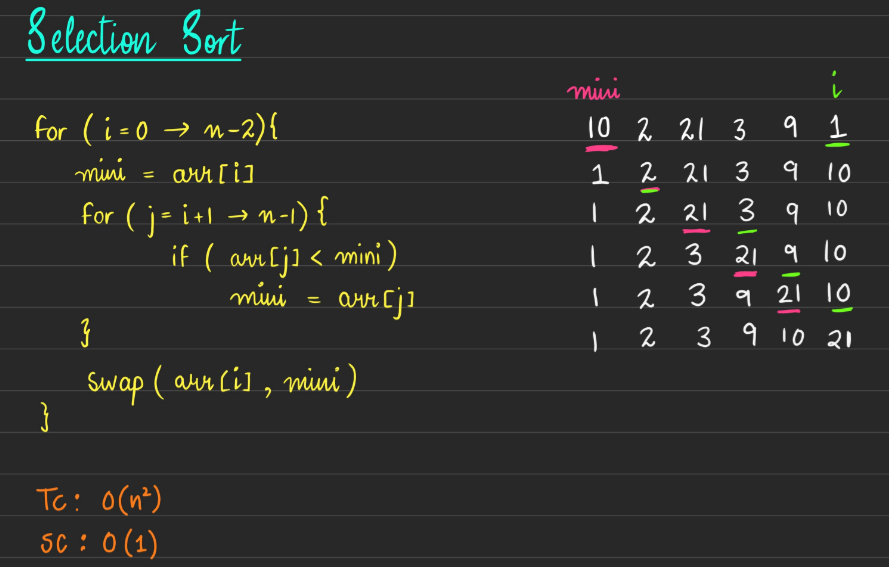 Selection Sort
for ( i = 0 → n-2){
mini = arr[i]
for ( j = i+1 → n-1) {
if ( arr[j] < mini)
mini = arr[j]
}
swap ( arr[i] , mini )
}
TC : O(n²)
SC : O(1)
mini i
10 2 21 3 9 1
1 2 21 3 9 10
1 2 21 3 9 10
1 2 3 21 9 10
1 2 3 9 21 10
1 2 3 9 10 21